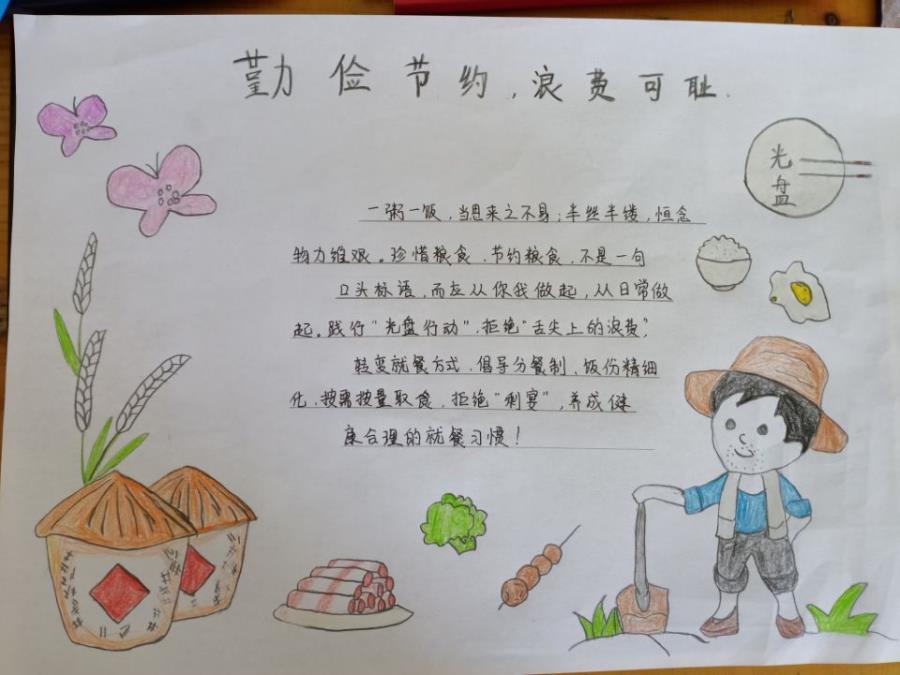 勤俭节约，浪费可耻.
光
盘
一粥一饭，当思来之不易；半丝半缕，恒念
物力维艰。珍惜粮食，节约粮食，不是一句
口头标语，而在从你我做起，从日常做
起。践行“光盘行动”，拒绝“舌尖上的浪费”，
转变就餐方式，倡导分餐制，饭份精细
化，按需按量取食，拒绝“剩宴”，养成健
康合理的就餐习惯！